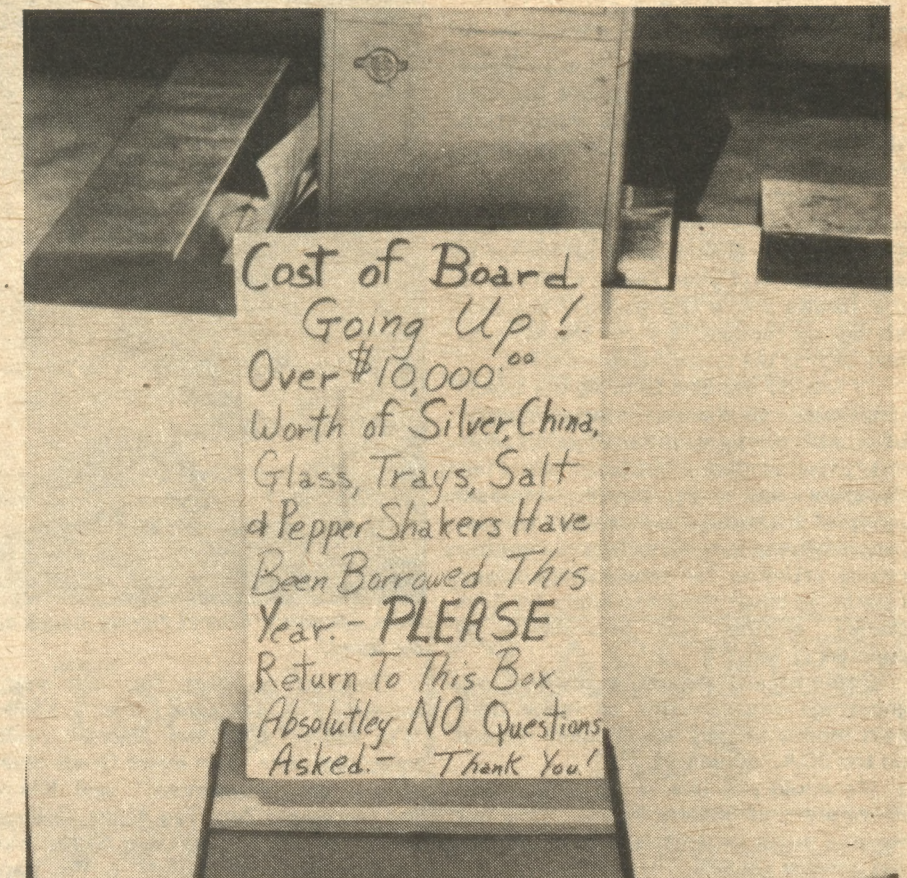 Cost of Board
Going Up!
Over $10,000.00
Worth of Silver, China,
Glass, Trays, Salt
& Pepper Shakers Have
Been Borrowed This
Year.- PLEASE
Return To This Box
Absolutley NO Questions
Asked.- Thank You!